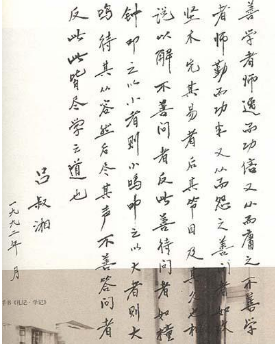 善学者师逸而功倍又从而庸之不善学
者师勤而功半又从而怨之善问者如攻
坚木先其易者后其节目及其久也相
说以解不善问者反此善待问者如撞
钟叩之以小者则小鸣叩之以大者则大
鸣待其从容然后尽其声不善答问者
反此此皆进学之道也
吕叔湘
一九九二年 月
书《礼记·学记》